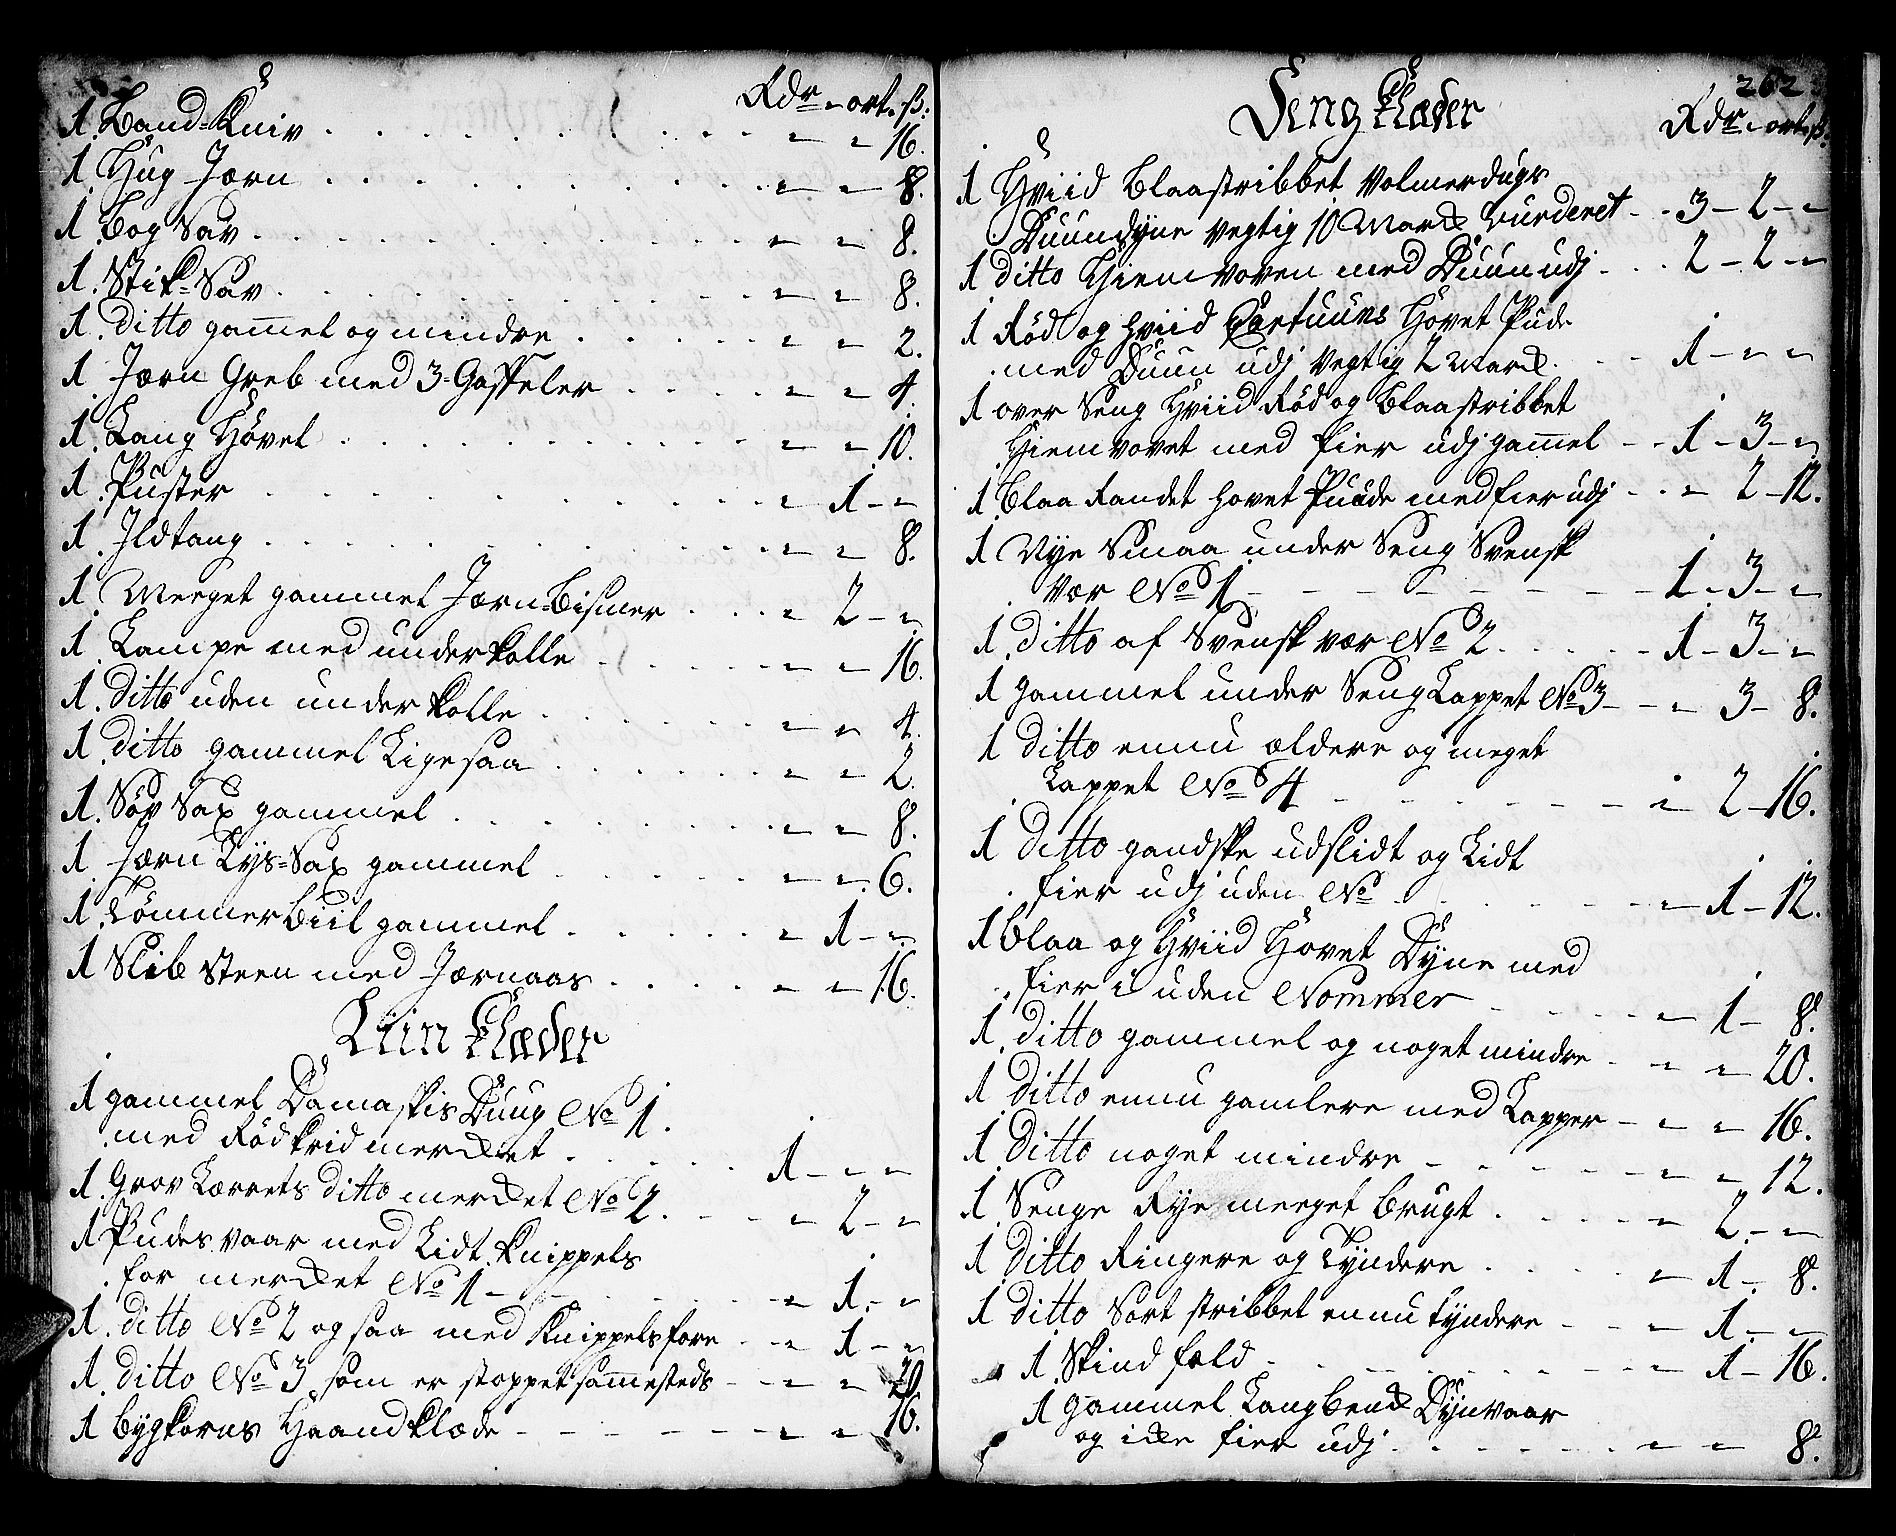 Rdr - ort. ß:
1. Baand-Kniv . . . - - 16.
1. Hug Jærn . . . - - 8.
1. Bog Sav . . . - - 8.
1. Stik-Sav . . . - - 8.
1. ditto gam̄el og mindre . . . - - 2.
1 Jærn Greb med 3-Gaffeler . . . - - 4.
1. Lang Høvel . . . - - 10.
1. Puster . . . - 1 - -
1. Ildtang . . . - - 8.
1. Meeget gammel Jærn-Bismer . . . - 2 - -
1. Lampe med underkolle . . . - - 16.
1. Ditto uden underkolle . . . - - 4.
1. ditto gammel Ligesaa . . . - - 2.
1. Søv Sax gammel . . . - - 8.
1. Jærn Lys-Sax gammel . . . - - 6.
1. Tömmer Biil gammel . . . - 1 - -
1 Slib steen med Jærnaas . . . - - 16.
Liin Klæder
1 gammel Damaskis Duug No 1.
med Rødkrid merket . . . 1 - - -
1. Grov Lærrets ditto merket No 2. - 2 - -
1 Pudes vaar med Lidt Knippels
for merket No 1 - - 1 - -
1. ditto No 2 og saa med Knippelsfore - - 1 - -
1. ditto No 3 som er stoppet sam̄esteds - - - 20.
1 bygkorns Haandklæde - - - 16.
262
Seng Klæder
Rdr - ort. ß.
1 Hviid Blaastribbet Volmerdugs
Duundyne vegtig 10 Mark vurderet - 3 - 2 - -
1 ditto Hiemvoven med Duun udj . . 2 - 2 - -
1 Rød og hviid Cartuuns Hovet Pude
med Duun udj vegtig 2 Mark. - 1 - - -
1 over Seng Hviid Rød og Blaastribbet
Hiemvovet med fier udj gam̄el - - 1 - 3 - -
1 Blaa Randet hovet Puude med fier udj - - - 2 - 12.
1 Nye Smaa under Seng Svensk
vær No 1. - - - 1 - 3 - -
1. ditto af Svensk vær No 2 . . . 1 - 3 - -
1 gammel under Seng Lappet No 3 - - - 3 - 8.
1 ditto ennu ældere og meget
Lappet No 4 - - - 2 - 16.
1 ditto gandske udslidt og Lidt
fier udj uden No . . . - 1 - 12.
1 Blaa og Hviid Hovet Dyne med
fier i uden Nommer - - - 1 - 8.
1. ditto gammel og noget mindre - - - 20.
1 ditto ennu gamlere med Lapper - - - 16.
1. Ditto noget mindre - - - 12.
1. Senge Rye meeget brugt . . . - 2 - -
1 ditto Ringere og Tyndere . . . - 1 - 8.
1 ditto Sort stribbet ennu tyndere - - - 1 - -
1. Skind fæld . . . - 1 - 16.
1 gammel Langbenk Dynvaar
og ikke fier udj . . . - - 8.